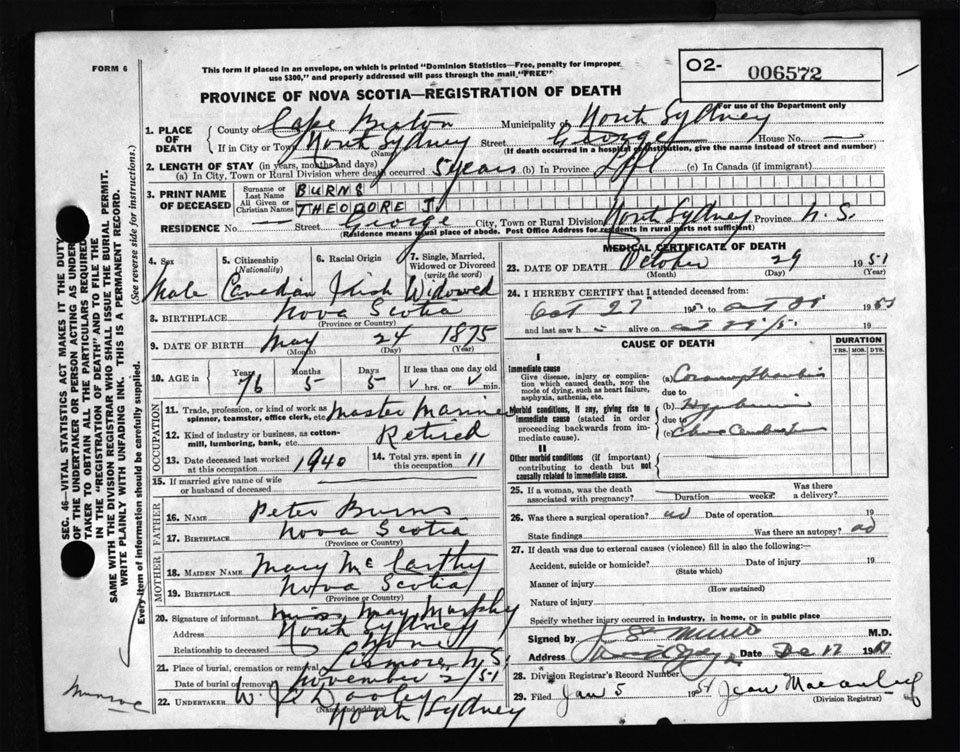 FORM 6
This form if placed in an envelope, on which is printed "Dominion Statistics—Free, penalty for improper
use $300," and properly addressed will pass through the mail "FREE"
O2- 006572
For use of the Department only
PROVINCE OF NOVA SCOTIA—REGISTRATION OF DEATH
1. PLACE OF DEATH
County of Cape Breton Municipality of North Sydney
If in City or Town North Sydney Street George House No. —
(Name) (If death occurred in a hospital or institution, give the name instead of street and number)
2. LENGTH OF STAY (in years, months and days)
(a) In City, Town or Rural Division where death occurred 5 years (b) In Province Life (c) In Canada (if immigrant)
3. PRINT NAME OF DECEASED
Surname or Last Name BURNS
All Given or Christian Names THEODORE J.
RESIDENCE No. — Street George City, Town or Rural Division North Sydney Province N. S.
(Residence means usual place of abode. Post Office Address for residents in rural parts not sufficient)
4. Sex
Male
5. Citizenship (Nationality)
Canadian
6. Racial Origin
Irish
7. Single, Married, Widowed or Divorced (write the word)
Widowed
8. BIRTHPLACE Nova Scotia
(Province or Country)
9. DATE OF BIRTH May 24 1875
(Month) (Day) (Year)
10. AGE in
Years Months Days If less than one day old
76 5 5 hrs. or min.
OCCUPATION
11. Trade, profession, or kind of work as spinner, teamster, office clerk, etc. Master Mariner
12. Kind of industry or business, as cotton-mill, lumbering, bank, etc. Retired
13. Date deceased last worked at this occupation 1940
14. Total yrs. spent in this occupation 11
15. If married give name of wife or husband of deceased
FATHER
16. NAME Peter Burns
17. BIRTHPLACE Nova Scotia
(Province or Country)
MOTHER
18. MAIDEN NAME Mary McCarthy
19. BIRTHPLACE Nova Scotia
(Province or Country)
20. Signature of informant Miss May Murphy
Address North Sydney
Relationship to deceased None
21. Place of burial, cremation or removal Lismore, N.S.
Date of burial or removal November 2/51
22. UNDERTAKER W. J. Dooley
(Name and address)
North Sydney
MEDICAL CERTIFICATE OF DEATH
23. DATE OF DEATH October 29 1951
(Month) (Day) (Year)
24. I HEREBY CERTIFY that I attended deceased from:
Oct 27 19 to Oct 19
and last saw h alive on Oct 29/51 19
CAUSE OF DEATH
DURATION
YRS. MOS. DYS.
I
Immediate cause
Give disease, injury or complication which caused death, NOT the mode of dying, such as heart failure, asphyxia, asthenia, etc.
(a) Coronary Thrombosis
due to
Morbid conditions, if any, giving rise to immediate cause (stated in order proceeding backwards from immediate cause).
(b)
due to
(c)
II
Other morbid conditions (if important) contributing to death but not causally related to immediate cause.
25. If a woman, was the death associated with pregnancy? Duration weeks. Was there a delivery?
26. Was there a surgical operation? no Date of operation 19
State findings Was there an autopsy? no
27. If death was due to external causes (violence) fill in also the following:—
Accident, suicide or homicide? Date of injury 19
(State which)
Manner of injury
(How sustained)
Nature of injury
Specify whether injury occurred in industry, in home, or in public place
Signed by Munro M.D.
Address Date Dec 17 19
28. Division Registrar's Record Number
29. Filed Jan 5 1951 Jean Macaulay
(Division Registrar)
SEC. 46—VITAL STATISTICS ACT MAKES IT THE DUTY
OF THE UNDERTAKER OR PERSON ACTING AS UNDER-
TAKER TO OBTAIN ALL THE PARTICULARS REQUIRED
IN THE "REGISTRATION OF DEATH" AND TO FILE THE
SAME WITH THE DIVISION REGISTRAR WHO SHALL ISSUE THE BURIAL PERMIT.
WRITE PLAINLY WITH UNFADING INK. THIS IS A PERMANENT RECORD.
Every item of information should be carefully supplied. (See reverse side for instructions.)
Munroe